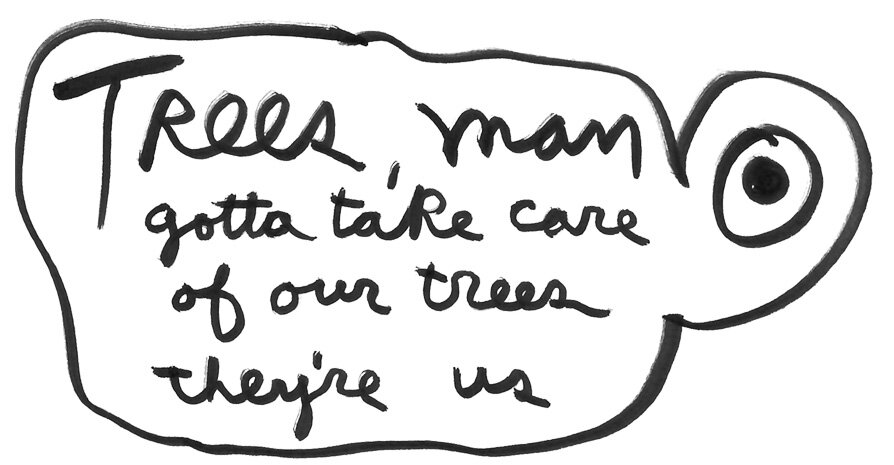 Trees, man
gotta take care
of our trees
they're us